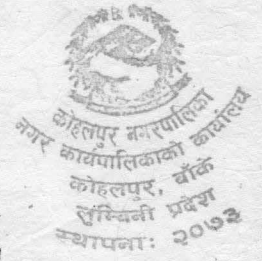 कोहलपुर नगरपालिका
नगर कार्यपालिकाको कार्यालय
कोहलपुर, बाँके
लुम्बिनी प्रदेश
स्थापनाः २०७३